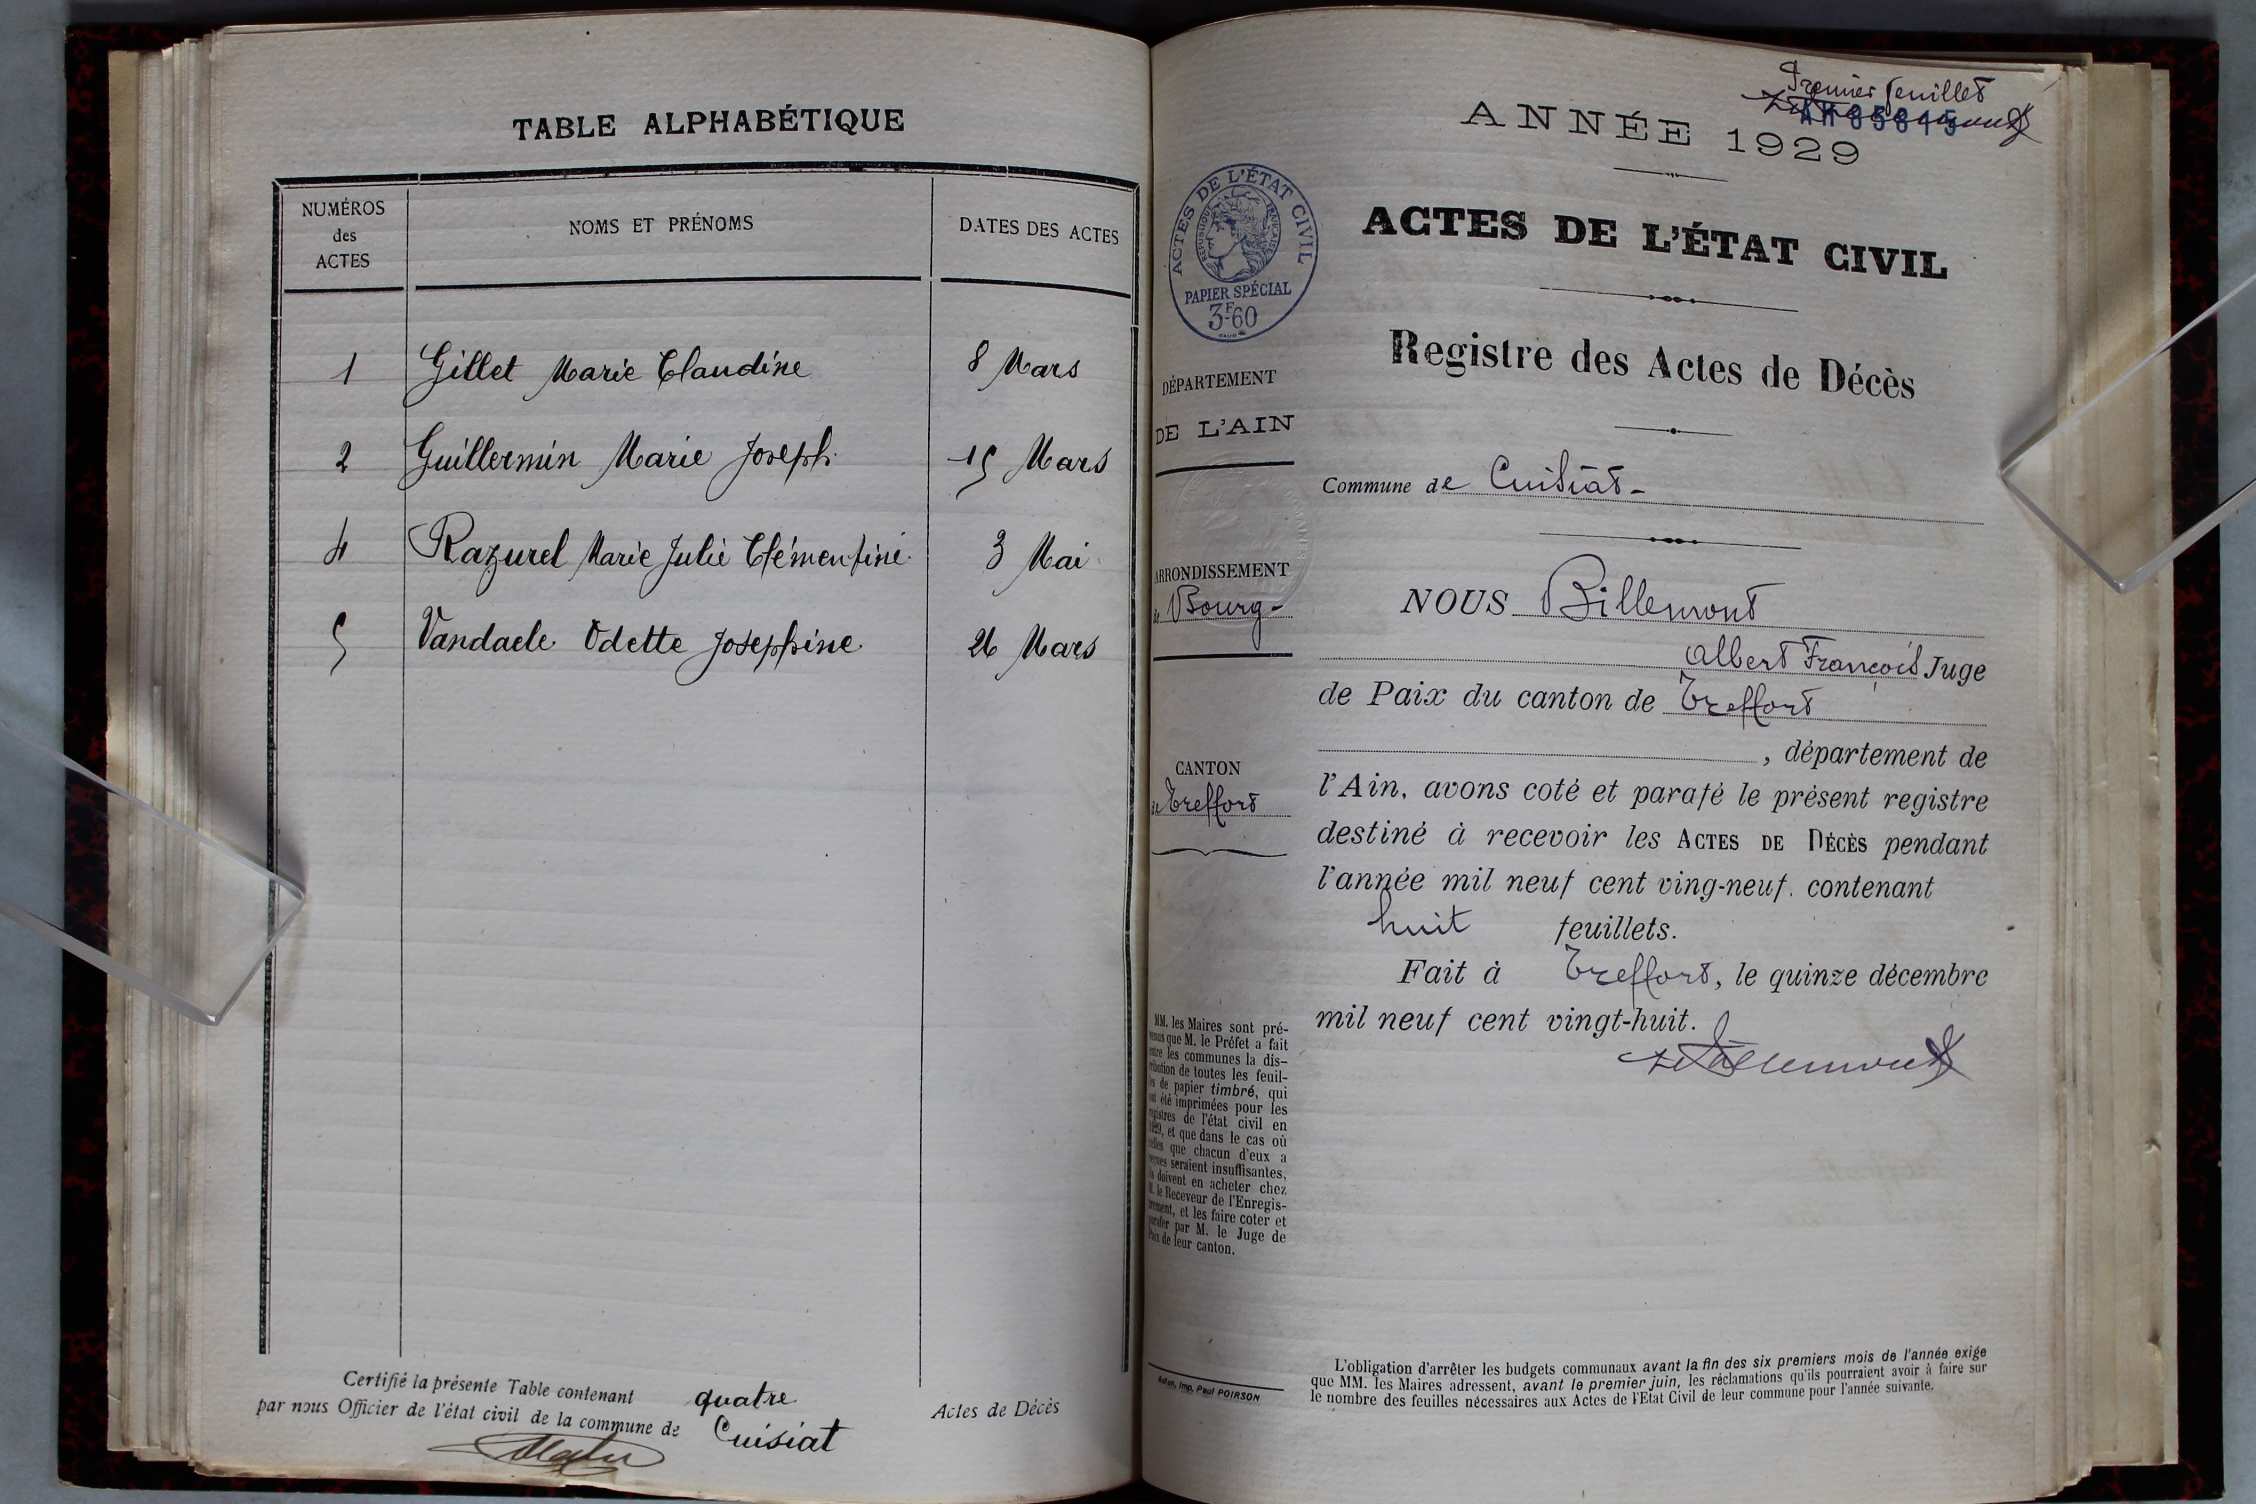 TABLE ALPHABÉTIQUE
NUMÉROS des ACTES
NOMS ET PRÉNOMS
DATES DES ACTES
1 Gillet Marie Claudine 8 Mars
2 Guillermin Marie Joseph. 15 Mars
4 Razurel Marie Julie Clémentine. 3 Mai
5 Vandaele Odette Josephine 26 Mars
Certifié la présente Table contenant quatre Actes de Décès
par nous Officier de l'état civil de la commune de Cuisiat
Premier feuillet
ANNÉE 1929
ACTES DE L'ÉTAT CIVIL
RÉPUBLIQUE FRANÇAISE
PAPIER SPÉCIAL
3F60
ACTES DE L'ÉTAT CIVIL
Registre des Actes de Décès
DÉPARTEMENT
DE L'AIN
Commune de Cuisiat-
ARRONDISSEMENT
de Bourg-
CANTON
de Treffort
NOUS Billemont
Albert François Juge
de Paix du canton de Treffort
, département de
l'Ain, avons coté et parafé le présent registre
destiné à recevoir les ACTES DE DÉCÈS pendant
l'année mil neuf cent ving-neuf. contenant
huit feuillets.
Fait à Treffort, le quinze décembre
mil neuf cent vingt-huit.
MM. les Maires sont pré-
venus que M. le Préfet a fait
entre les communes la dis-
tribution de toutes les feuil-
les de papier timbré, qui
ont été imprimées pour les
registres de l'état civil en
1929, et que dans le cas où
celles que chacun d'eux a
reçues seraient insuffisantes,
ils doivent en acheter chez
M. le Receveur de l'Enregis-
trement, et les faire coter et
parafer par M. le Juge de
Paix de leur canton.
Imp. Paul POIRSON
L'obligation d'arrêter les budgets communaux avant la fin des six premiers mois de l'année exige
que MM. les Maires adressent, avant le premier juin, les réclamations qu'ils pourraient avoir à faire sur
le nombre des feuilles nécessaires aux Actes de l'Etat Civil de leur commune pour l'année suivante.